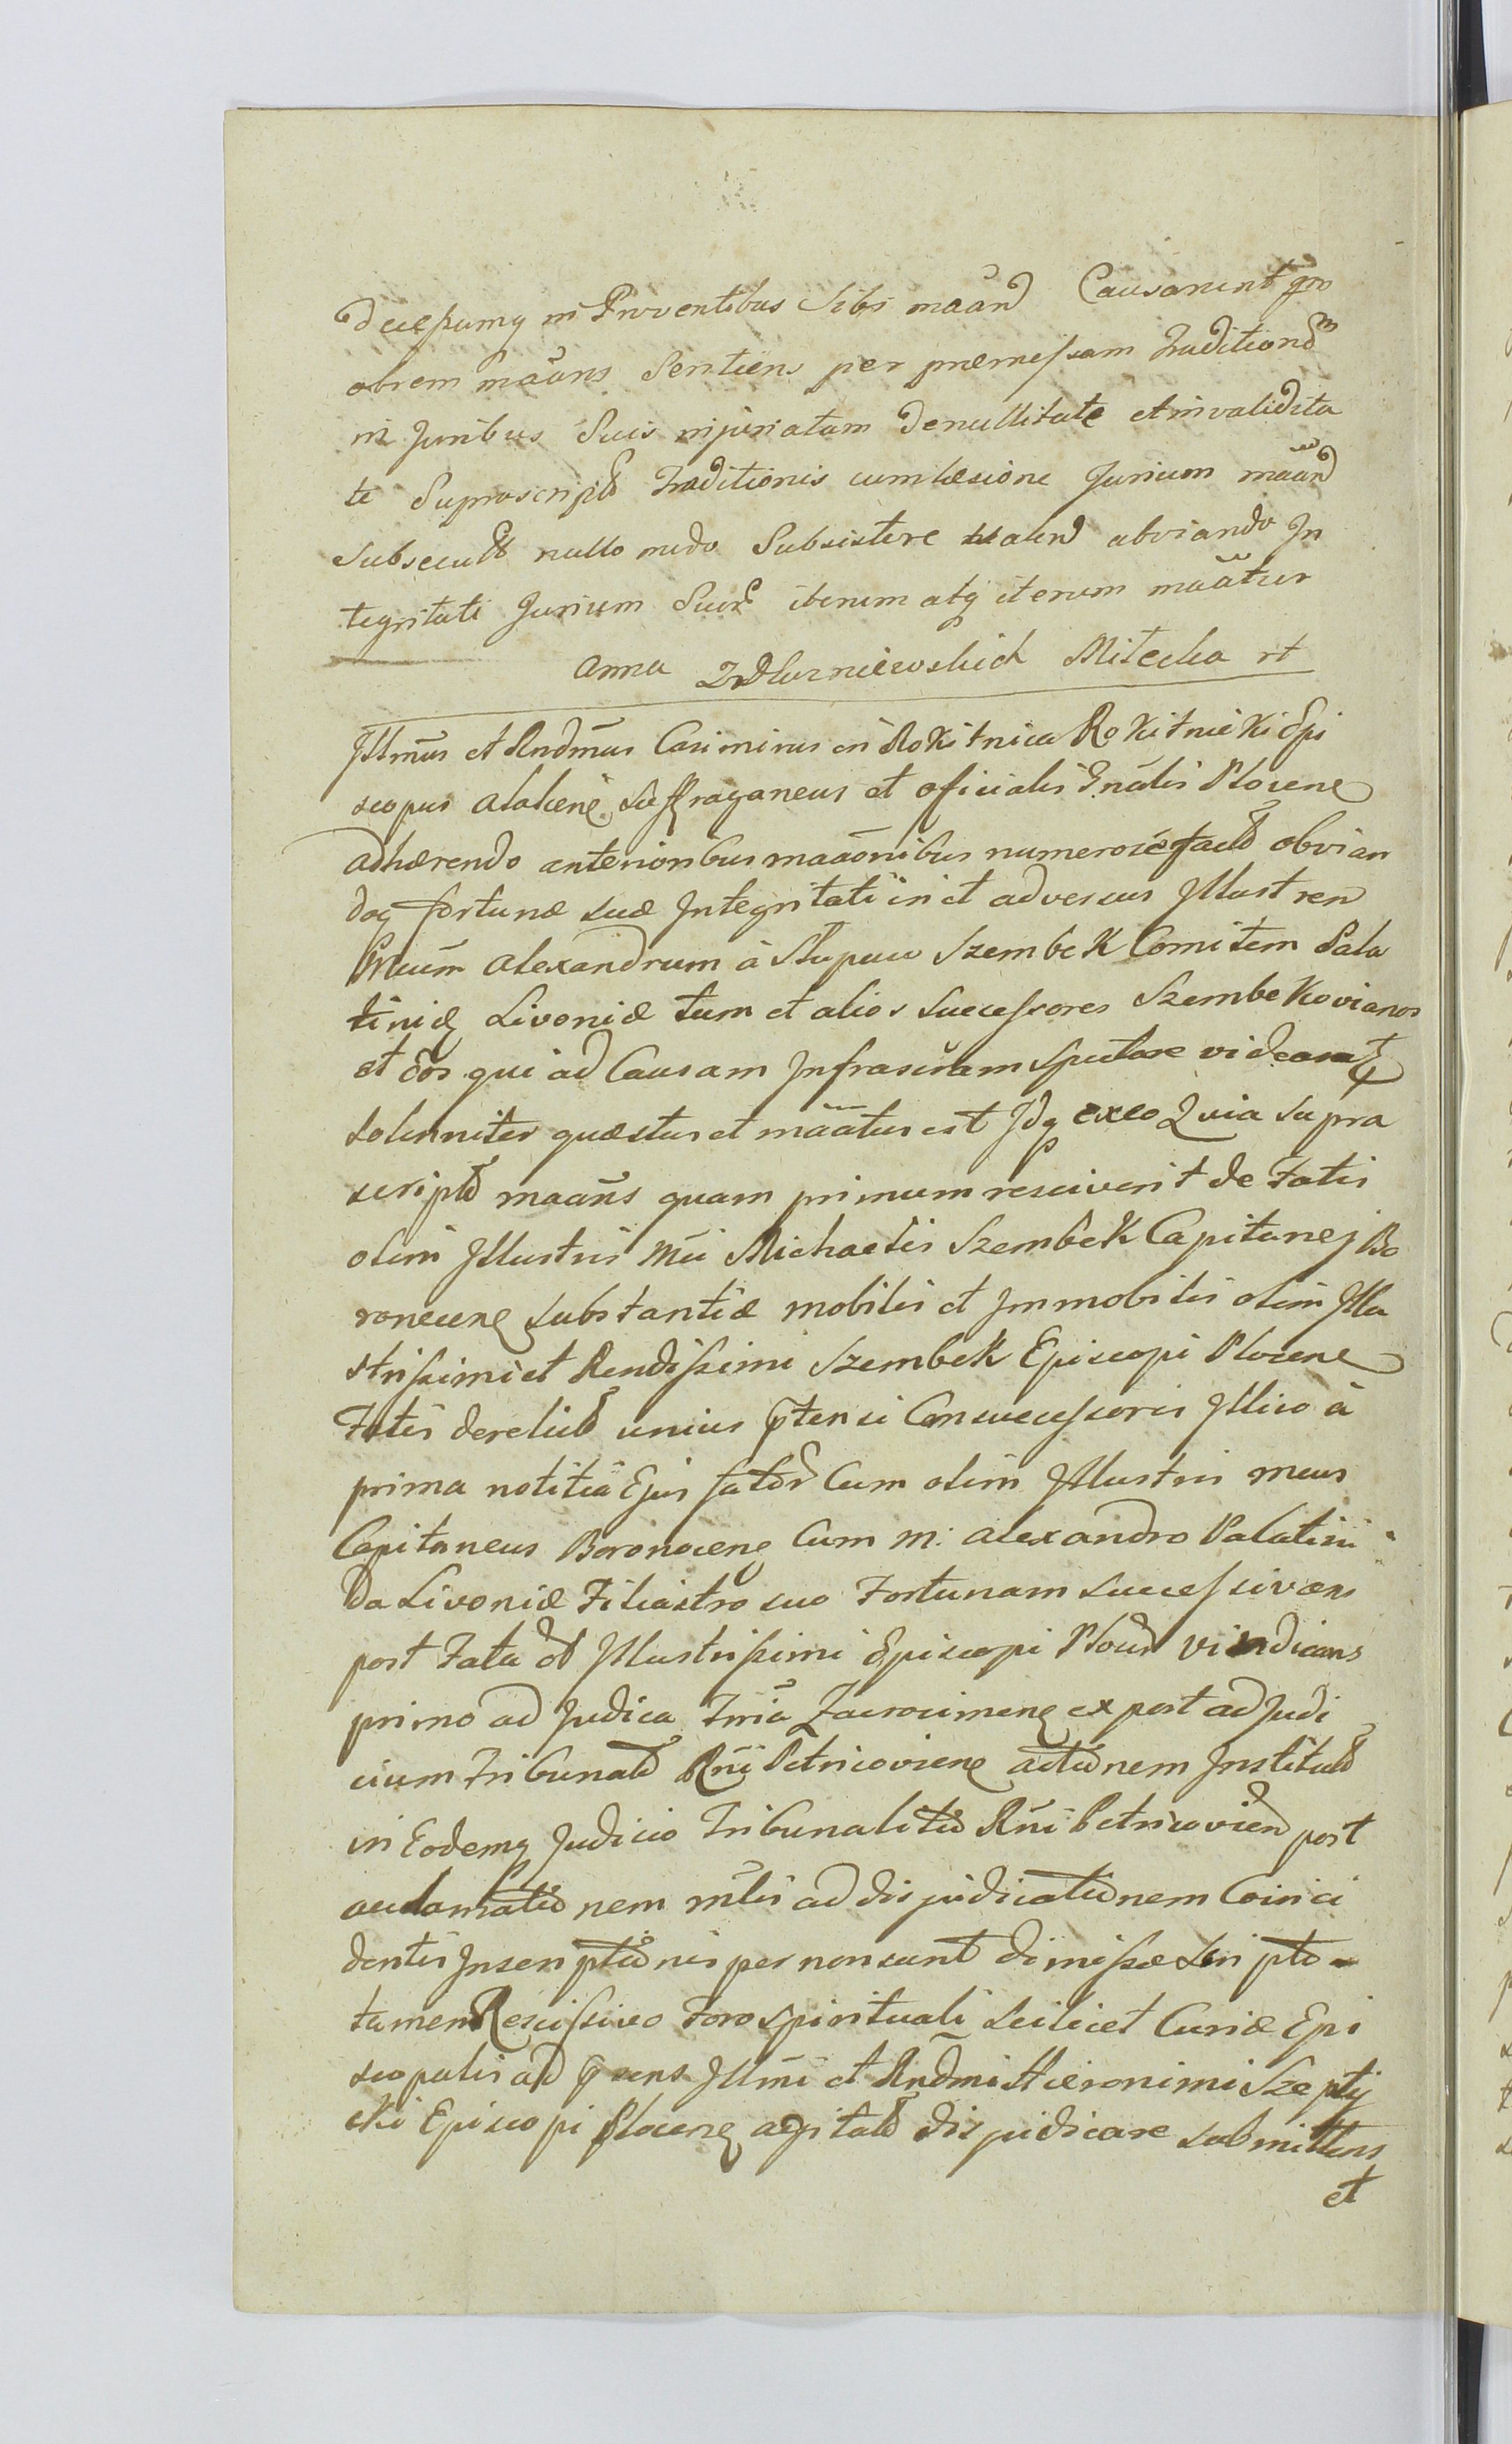 Decessumq in Proventibus sibi maand Causarunt quo
obrem maans Sentiens per praemessam Traditionem
in Juribus Suis injuriatam de nullitate et invalidita
te Suprascriptae Traditionis cum laesione Jurium maand
Subsecutae nullo modo Subsistere valend obviando In
tegritati Jurium Suor iterum atq iterum maatur
Anna Miłecka rt
Jllmus et Rndmus Casimirus in Rokitnica Rokitnicki Epi
scopus Suffraganeus et oficialis Gnalis Plocens
adhaerendo anterioribus maaonibus numerose fact obvian
doq fortunae suae Integritati in et adversus Illustren
Alexandrum à Słupow Szembek Comitem Pala
tinid Livoniae tum et alios Successores Szembekovianos
et eos qui ad Causam Infrascram spectare videant
solenniter quaestus et maatus est Jdq ex eo Quia supra
script maans quam primum resciverit de Fatis
olim Illustris Mci Michaelis Szembek Capitanej Bo
substantiae mobilis et Immobilis olim Illu
strissimi et Rendissimi Szembek Episcopi Plocens
Fatis derelict unius ptensi Consuccessoris Illico à
prima notitia Ejus fator Cum olim Illustris meus
Capitaneus Cum M: Alexandro Palatini
da Livoniae Filiastro suo Fortunam successivam
post Fata ol Illustrissimi Episcopi Plocen vindicans
primo ad Judica Trria Zacrocimens ex post ad Judi
cium Tribunal Rni Petricoviens actionem Institut
in Eodemq Judicio Tribunalitio Rni Petricovien post
acclamationem mlis ad disjudicationem Coinci
dentis Inscriptionis per non sunt dimissae script
tamen Rescissivo Foro spirituali scilicet Curiae Epi
scopalis ad psens Illmi et Rndmi Hieronimi Szepty
cki Episcopi Plocens agitat disjudicare submittens
et